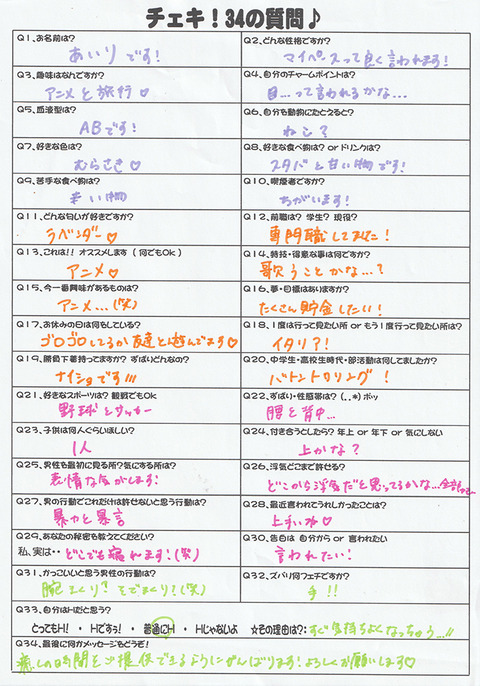 チェキ！34の質問♪
Q1、お名前は？
あいりです！
Q2、どんな性格ですか？
マイペースって良く言われます！
Q3、趣味はなんですか？
アニメと旅行♡
Q4、自分のチャームポイントは？
目…って言われるかな…
Q5、血液型は？
ABです！
Q6、自分も動物にたとえると？
ねこ？
Q7、好きな色は？
むらさき♡
Q8、好きな食べ物は？ or ドリンクは？
スタバと甘い物です！
Q9、苦手な食べ物は？
辛い物
Q10、喫煙者ですか？
ちがいます！
Q11、どんな匂いが好きですか？
ラベンダー♡
Q12、前職は？ 学生？ 現役？
専門職してました！
Q13、これは!! オススメします（何でもOk）
アニメ♡
Q14、特技・得意な事は何ですか？
歌うことかな…？
Q15、今一番興味があるものは？
アニメ…(笑)
Q16、夢・目標はありますか？
たくさん貯金したい！
Q17、お休みの日は何もしている？
ゴロゴロしてるか友達と遊んでます♡
Q18、1度は行って見たい所 or もう1度行って見たい所は？
イタリア！
Q19、勝負下着持ってますか？ ずばりどんなの？
ナイショです!!!
Q20、中学生・高校生時代・部活動は何してましたか？
バトントワリング！
Q21、好きなスポーツは？ 観戦でもOK
野球とサッカー
Q22、ずばり・性感帯は？（．．*）ポッ
腰と背中…
Q23、子供は何人ぐらいほしい？
1人
Q24、付き合うとしたら？ 年上 or 年下 or 気にしない
上かな？
Q25、男性も最初に見る所？気にする所は？
表情な気がします！
Q26、浮気どこまで許せる？
どこから浮気だと思ってるかな…
Q27、男の行動でこれだけは許せないと思う行動は？
暴力と暴言
Q28、最近言われてうれしかったことは？
上手いね♡
Q29、あなたの秘密も教えてください？
私、実は・・どこでも寝れます！(笑)
Q30、告白は 自分から or 言われたい
言われたい！
Q31、かっこいいと思う男性の行動は？
腕まくり？そでまくり？(笑)
Q32、ズバリ何フェチですか？
手！！
Q33、自分はHだと思う？
とってもH！ ・ Hですぅ！ ・ 普通にH ・ Hじゃないよ ☆その理由は？：すぐ気持ちよくなっちゃう…!!
Q34、最後に何かメッセージもどうぞ！
癒しの時間をご提供できるようにがんばります！よろしくお願いします♡